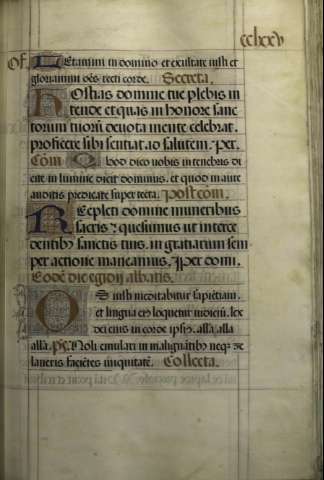 cclxxv
Of. Letamini in domino et exultate iusti et
gloriamini oēs recti corde. Secreta.
Hostias domine tue plebis in
tende et quas in honore sanc
torum tuorū deuota mente celebrat.
proficere sibi sentiat ad salutem. Per.
Cōm Quod dico uobis in tenebris di
cite in lumine dicit dominus. et quod in aure
auditis predicate super tecta. Postcōm.
Repleti domine muneribus
sacris quesumus ut interce
dentibꝰ sanctis tuis. in gratiarum sem
per actione maneamus. Per domi.
Eodē die egidij abbatis.
Os iusti meditabitur sapiētiam.
et lingua eiꝰ loquetur iudiciū. lex
dei eius in corde ipsiꝰ. alla alla
alla. ps. Noli emulari in malignātibꝰ neqꝫ ze
laueris faciētes iniquitatē. Collecta.